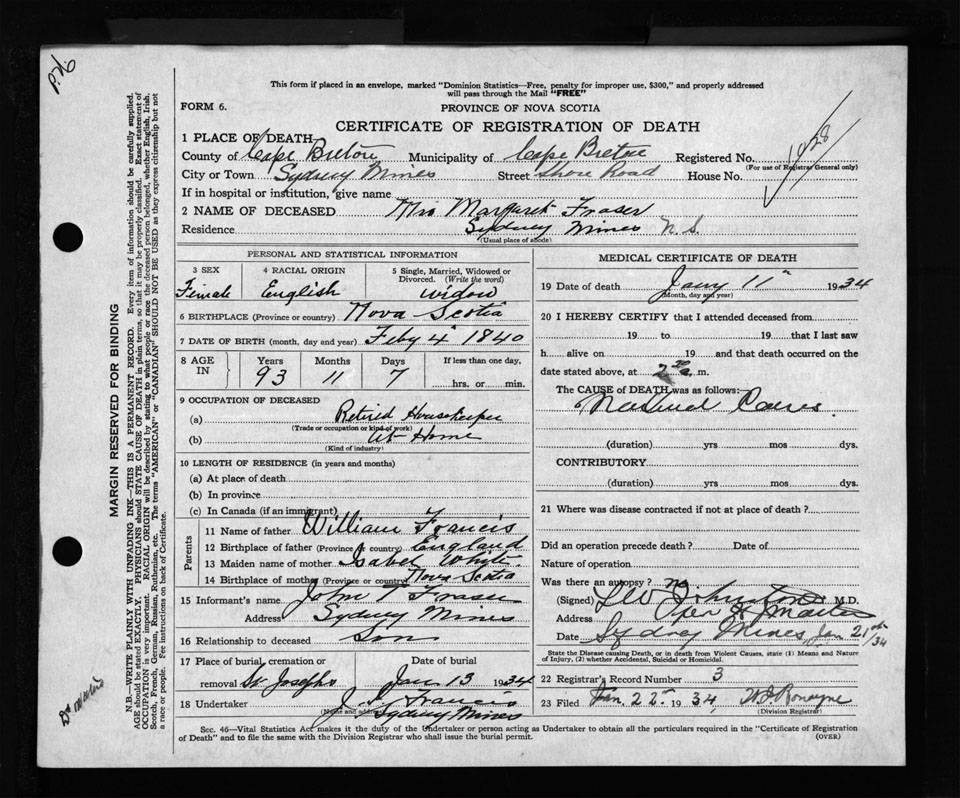 This form if placed in an envelope, marked "Dominion Statistics—Free, penalty for improper use, $300," and properly addressed
will pass through the Mail "FREE"
FORM 6.
PROVINCE OF NOVA SCOTIA
CERTIFICATE OF REGISTRATION OF DEATH
1 PLACE OF DEATH
County of Cape Breton Municipality of Cape Breton Registered No. 1028
(For use of Registrar General only)
City or Town Sydney Mines Street Shore Road House No.
If in hospital or institution, give name
2 NAME OF DECEASED Mrs Margaret Fraser
Residence Sydney Mines N.S.
(Usual place of abode)
PERSONAL AND STATISTICAL INFORMATION
3 SEX 4 RACIAL ORIGIN 5 Single, Married, Widowed or
Divorced. (Write the word)
Female English Widow
6 BIRTHPLACE (Province or country) Nova Scotia
7 DATE OF BIRTH (month, day and year) Feby 4 1840
8 AGE IN Years Months Days If less than one day,
93 11 7 hrs. or min.
9 OCCUPATION OF DECEASED
(a) Retired Housekeeper
(Trade or occupation or kind of work)
(b) At Home
(Kind of industry)
10 LENGTH OF RESIDENCE (in years and months)
(a) At place of death
(b) In province
(c) In Canada (if an immigrant)
Parents
11 Name of father William Francis
12 Birthplace of father (Province or country) England
13 Maiden name of mother Isabel
14 Birthplace of mother (Province or country) Nova Scotia
15 Informant's name John T Fraser
Address Sydney Mines
16 Relationship to deceased Son
17 Place of burial, cremation or Date of burial
removal St Josephs Jan 13 1934
18 Undertaker J. Francis
(Name and address) Sydney Mines
MEDICAL CERTIFICATE OF DEATH
19 Date of death Jany 11 1934
(Month, day and year)
20 I HEREBY CERTIFY that I attended deceased from
19 to 19 that I last saw
h alive on 19 and that death occurred on
date stated above, at 2 m.
The CAUSE of DEATH was as follows:
Natural
(duration) yrs mos dys.
CONTRIBUTORY
(duration) yrs mos dys.
21 Where was disease contracted if not at place of death?
Did an operation precede death? Date of
Nature of operation
Was there an autopsy? no
(Signed) L W Johnston M.D.
Address
Date Sydney Mines, Jan 21st/34
State the Disease causing Death, or in death from Violent Causes, state (1) Means and Nature
of Injury, (2) whether Accidental, Suicidal or Homicidal.
22 Registrar's Record Number 3
23 Filed Jan. 22 1934
(Division Registrar)
Sec. 46—Vital Statistics Act makes it the duty of the Undertaker or person acting as Undertaker to obtain all the particulars required in the "Certificate of Registration
of Death" and to file the same with the Division Registrar who shall issue the burial permit. (OVER)
MARGIN RESERVED FOR BINDING
N.B.—WRITE PLAINLY WITH UNFADING INK—THIS IS A PERMANENT RECORD. Every item of information should be carefully supplied.
AGE should be stated EXACTLY. PHYSICIANS should STATE CAUSE OF DEATH in plain terms, so that it may be properly classified. Exact statement of
OCCUPATION is very important. RACIAL ORIGIN will be described by stating to what people or race the deceased person belonged, whether English, Irish,
Scotch, French, German, Russian, Ruthenian, etc. The terms "AMERICAN" or "CANADIAN" SHOULD NOT BE USED as they express citizenship but not
a race or people. Fee instructions on back of Certificate.